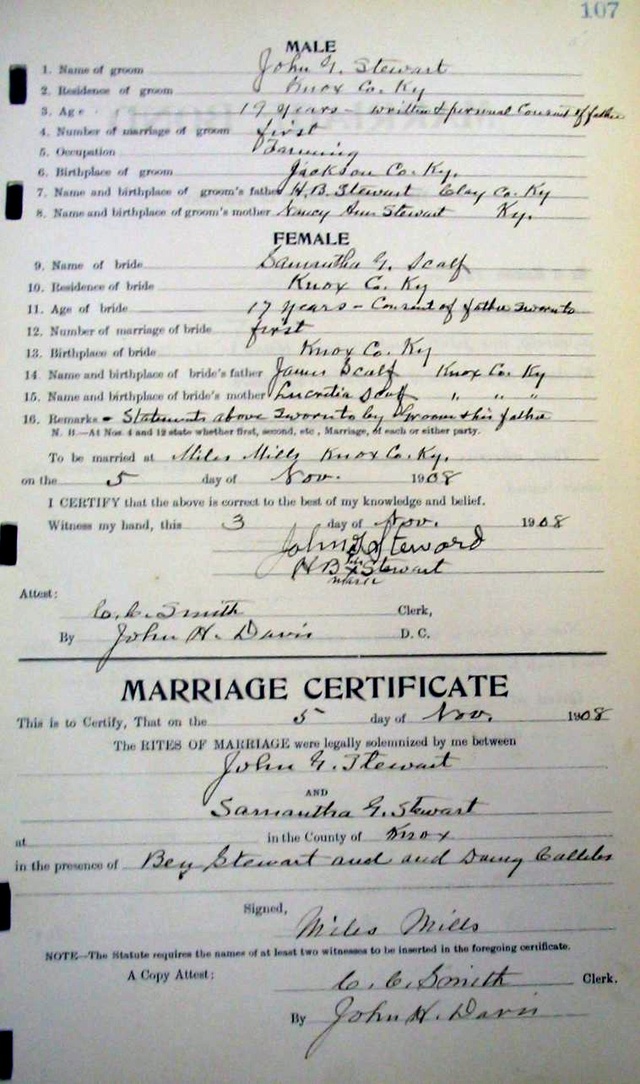 107
MALE
1. Name of groom John G. Stewart
2. Residence of groom Knox Co. Ky
3. Age 19 years - written & personal Consent of father
4. Number of marriage of groom first
5. Occupation Farming
6. Birthplace of groom Jackson Co. Ky.
7. Name and birthplace of groom's father H.B. Stewart Clay Co. Ky
8. Name and birthplace of groom's mother Nancy Ann Stewart Ky.
FEMALE
9. Name of bride Samantha G. Scalf
10. Residence of bride Knox Co. Ky
11. Age of bride 17 years - Consent of father sworn to
12. Number of marriage of bride first
13. Birthplace of bride Knox Co. Ky
14. Name and birthplace of bride's father James Scalf Knox Co. Ky
15. Name and birthplace of bride's mother Lucretia Scalf " " "
16. Remarks - Statements above sworn to by Groom & his father
N. B.—At Nos. 4 and 12 state whether first, second, etc., Marriage, of each or either party.
To be married at Miles Mills Knox Co. Ky.
on the 5 day of Nov. 1908
I CERTIFY that the above is correct to the best of my knowledge and belief.
Witness my hand, this 3 day of Nov. 1908
John G Steward
H B his x mark Stewart
Attest:
C. C. Smith Clerk,
By John H. Davis D. C.
MARRIAGE CERTIFICATE
This is to Certify, That on the 5 day of Nov. 1908
The RITES OF MARRIAGE were legally solemnized by me between
John G. Stewart
AND
Samantha G. Stewart
at in the County of Knox
in the presence of Ben Stewart and and
Signed,
Miles Mills
NOTE—The Statute requires the names of at least two witnesses to be inserted in the foregoing certificate.
A Copy Attest: C. C. Smith Clerk.
By John H. Davis